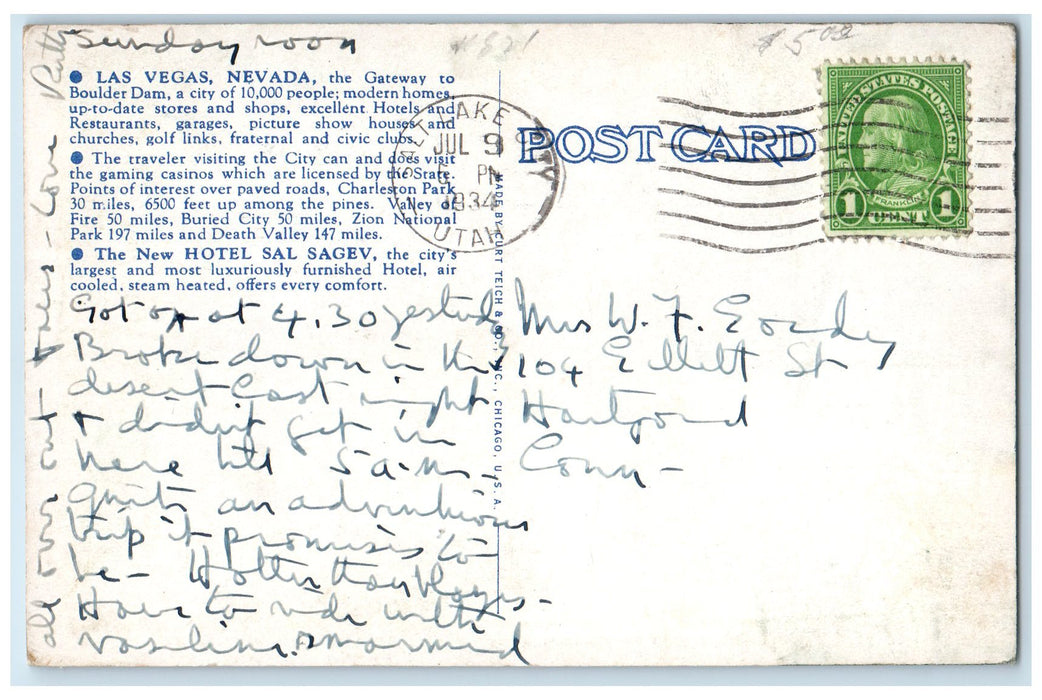 Sunday noon
# 821
$ 5.00
● LAS VEGAS, NEVADA, the Gateway to
Boulder Dam, a city of 10,000 people; modern homes,
up-to-date stores and shops, excellent Hotels and
Restaurants, garages, picture show houses and
churches, golf links, fraternal and civic clubs.
● The traveler visiting the City can and does visit
the gaming casinos which are licensed by the State.
Points of interest over paved roads, Charleston Park
30 miles, 6500 feet up among the pines. Valley of
Fire 50 miles, Buried City 50 miles, Zion National
Park 197 miles and Death Valley 147 miles.
● The New HOTEL SAL SAGEV, the city's
largest and most luxuriously furnished Hotel, air
cooled, steam heated, offers every comfort.
Got off at 4.30 yesterday
Broke down in the
desert last night
+ didn't get in
here till 5 a.m.
quite an adventurous
trip it promises to
be - Hotter than blazes -
Have to ride with
vaseline smeared
all over out faces - Love Ruth
MADE BY CURT TEICH & CO., INC., CHICAGO, U.S.A.
POST CARD
SALT LAKE CITY
JUL 9
5 PM
1934
UTAH
UNITED STATES POSTAGE
FRANKLIN
1 CENT 1
Mrs W. F.
104 Ellett St
Hartford
Conn -